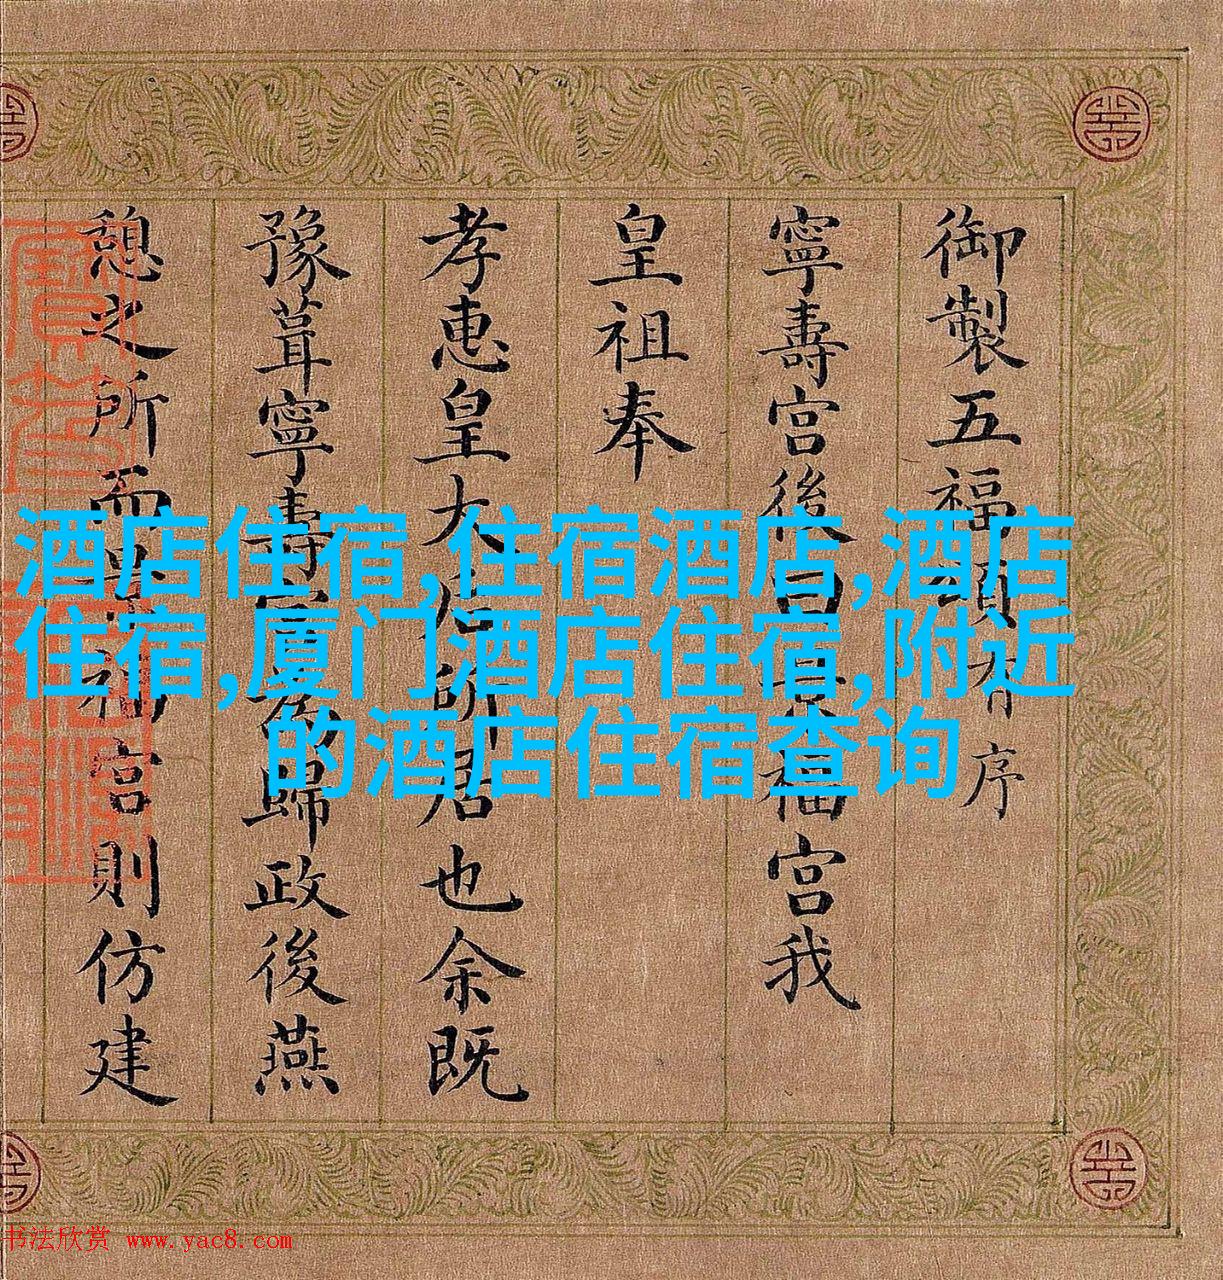 御製五福頌有序
寧壽宮後曰景福宮我
皇祖奉
孝惠皇太后所居也余既
豫葺寧壽宮為歸政後燕
憩之所而景福宮則仿建
酒店住宿,住宿酒店,酒店
住宿,厦门酒店住宿,附近
的酒店住宿查询
书法欣赏 www.yac8.com